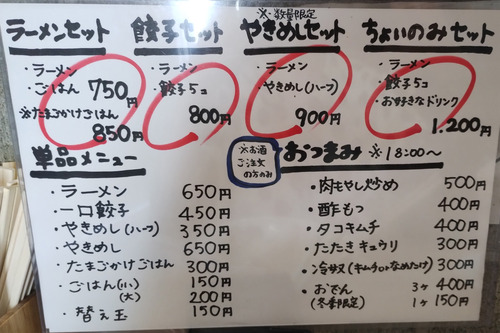 ラーメンセット
・ラーメン
・ごはん 750円
※たまごかけごはん
850円
餃子セット
・ラーメン
・餃子5コ
800円
※・数量限定
やきめしセット
・ラーメン
・やきめし(ハーフ)
900円
ちょいのみセット
・ラーメン
・餃子5コ
・お好きなドリンク
1.200円
単品メニュー
・ラーメン 650円
・一口餃子 450円
・やきめし(ハーフ) 350円
・やきめし 650円
・たまごかけごはん 300円
・ごはん(小) 150円
(大) 200円
・替え玉 150円
※お酒
ご注文
の方のみ
おつまみ ※18:00〜
・肉もやし炒め 500円
・酢もつ 400円
・タコキムチ 400円
・たたきキュウリ 300円
・冷奴(キムチorなめたけ) 300円
・おでん 3ヶ 400円
(冬季限定) 1ヶ 150円